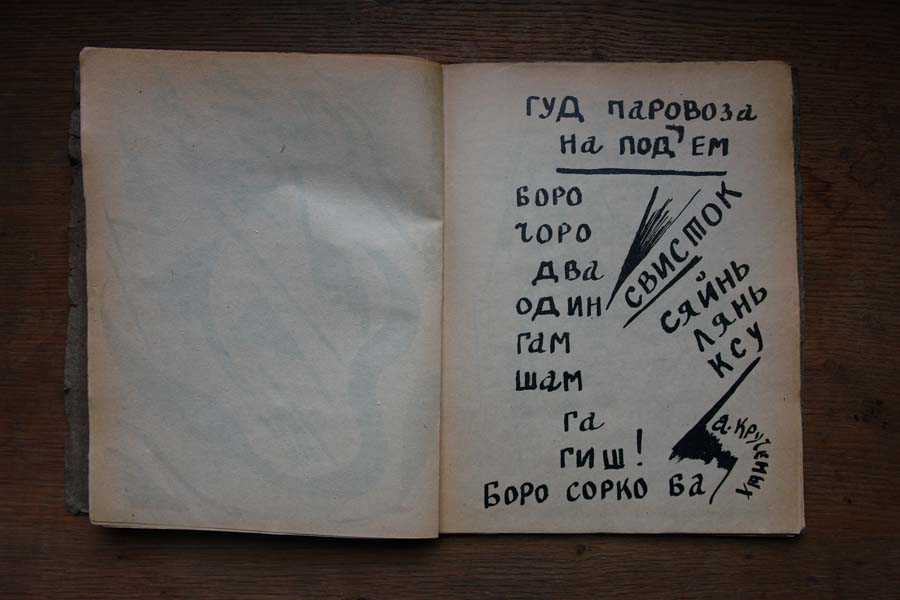 ГУД ПАРОВОЗА
НА ПОД'ЕМ
БОРО
ЧОРО
ДВА
ОДИН
ГАМ
ШАМ
ГА
ГИШ!
БОРО СОРКО БА
СВИСТОК
СЯЙНЬ
ЛЯНЬ
КСУ
А. КРУЧЕНЫХ